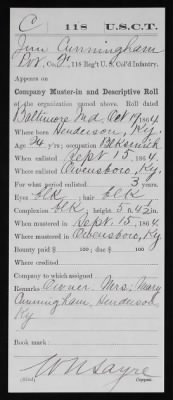 C | 118 | U.S.C.T.
Jim Cunningham
Pvt., Co. F, 118 Reg't U. S. Col'd Infantry.
Appears on
Company Muster-in and Descriptive Roll
of the organization named above. Roll dated
Baltimore Md, Oct 19, 1864
Where born Henderson, Ky.
Age 24 y'rs; occupation Blksmith
When enlisted Sept. 15, 1864.
Where enlisted Owensboro, Ky.
For what period enlisted 3 years.
Eyes blk; hair blk
Complexion blk; height 5 ft. 4½ in.
When mustered in Sept. 15, 1864.
Where mustered in Owensboro, Ky
Bounty paid $ 100; due $ 100
Where credited
Company to which assigned
Remarks: Owner Mrs. Mary
Cunningham, Henderson
Ky
Book mark:
W N Sayre
(341d) Copyist.